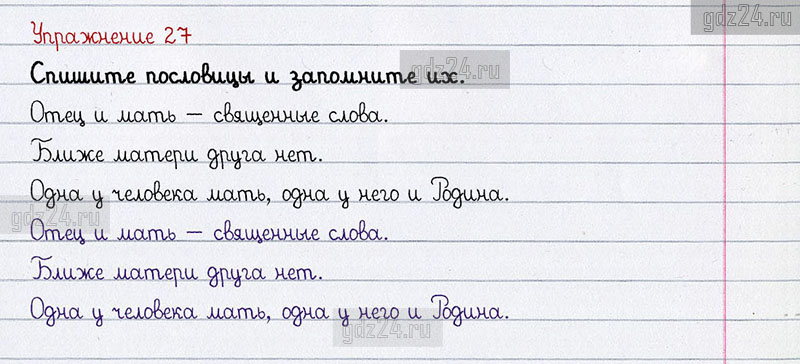 gdz24.ru
Упражнение 27
Спишите пословицы и запомните их.
gdz24.ru
Отец и мать – священные слова.
Ближе матери друга нет.
Одна у человека мать, одна у него и Родина.
gdz24.ru
Отец и мать – священные слова.
Ближе матери друга нет.
Одна у человека мать, одна у него и Родина.
gdz24.ru